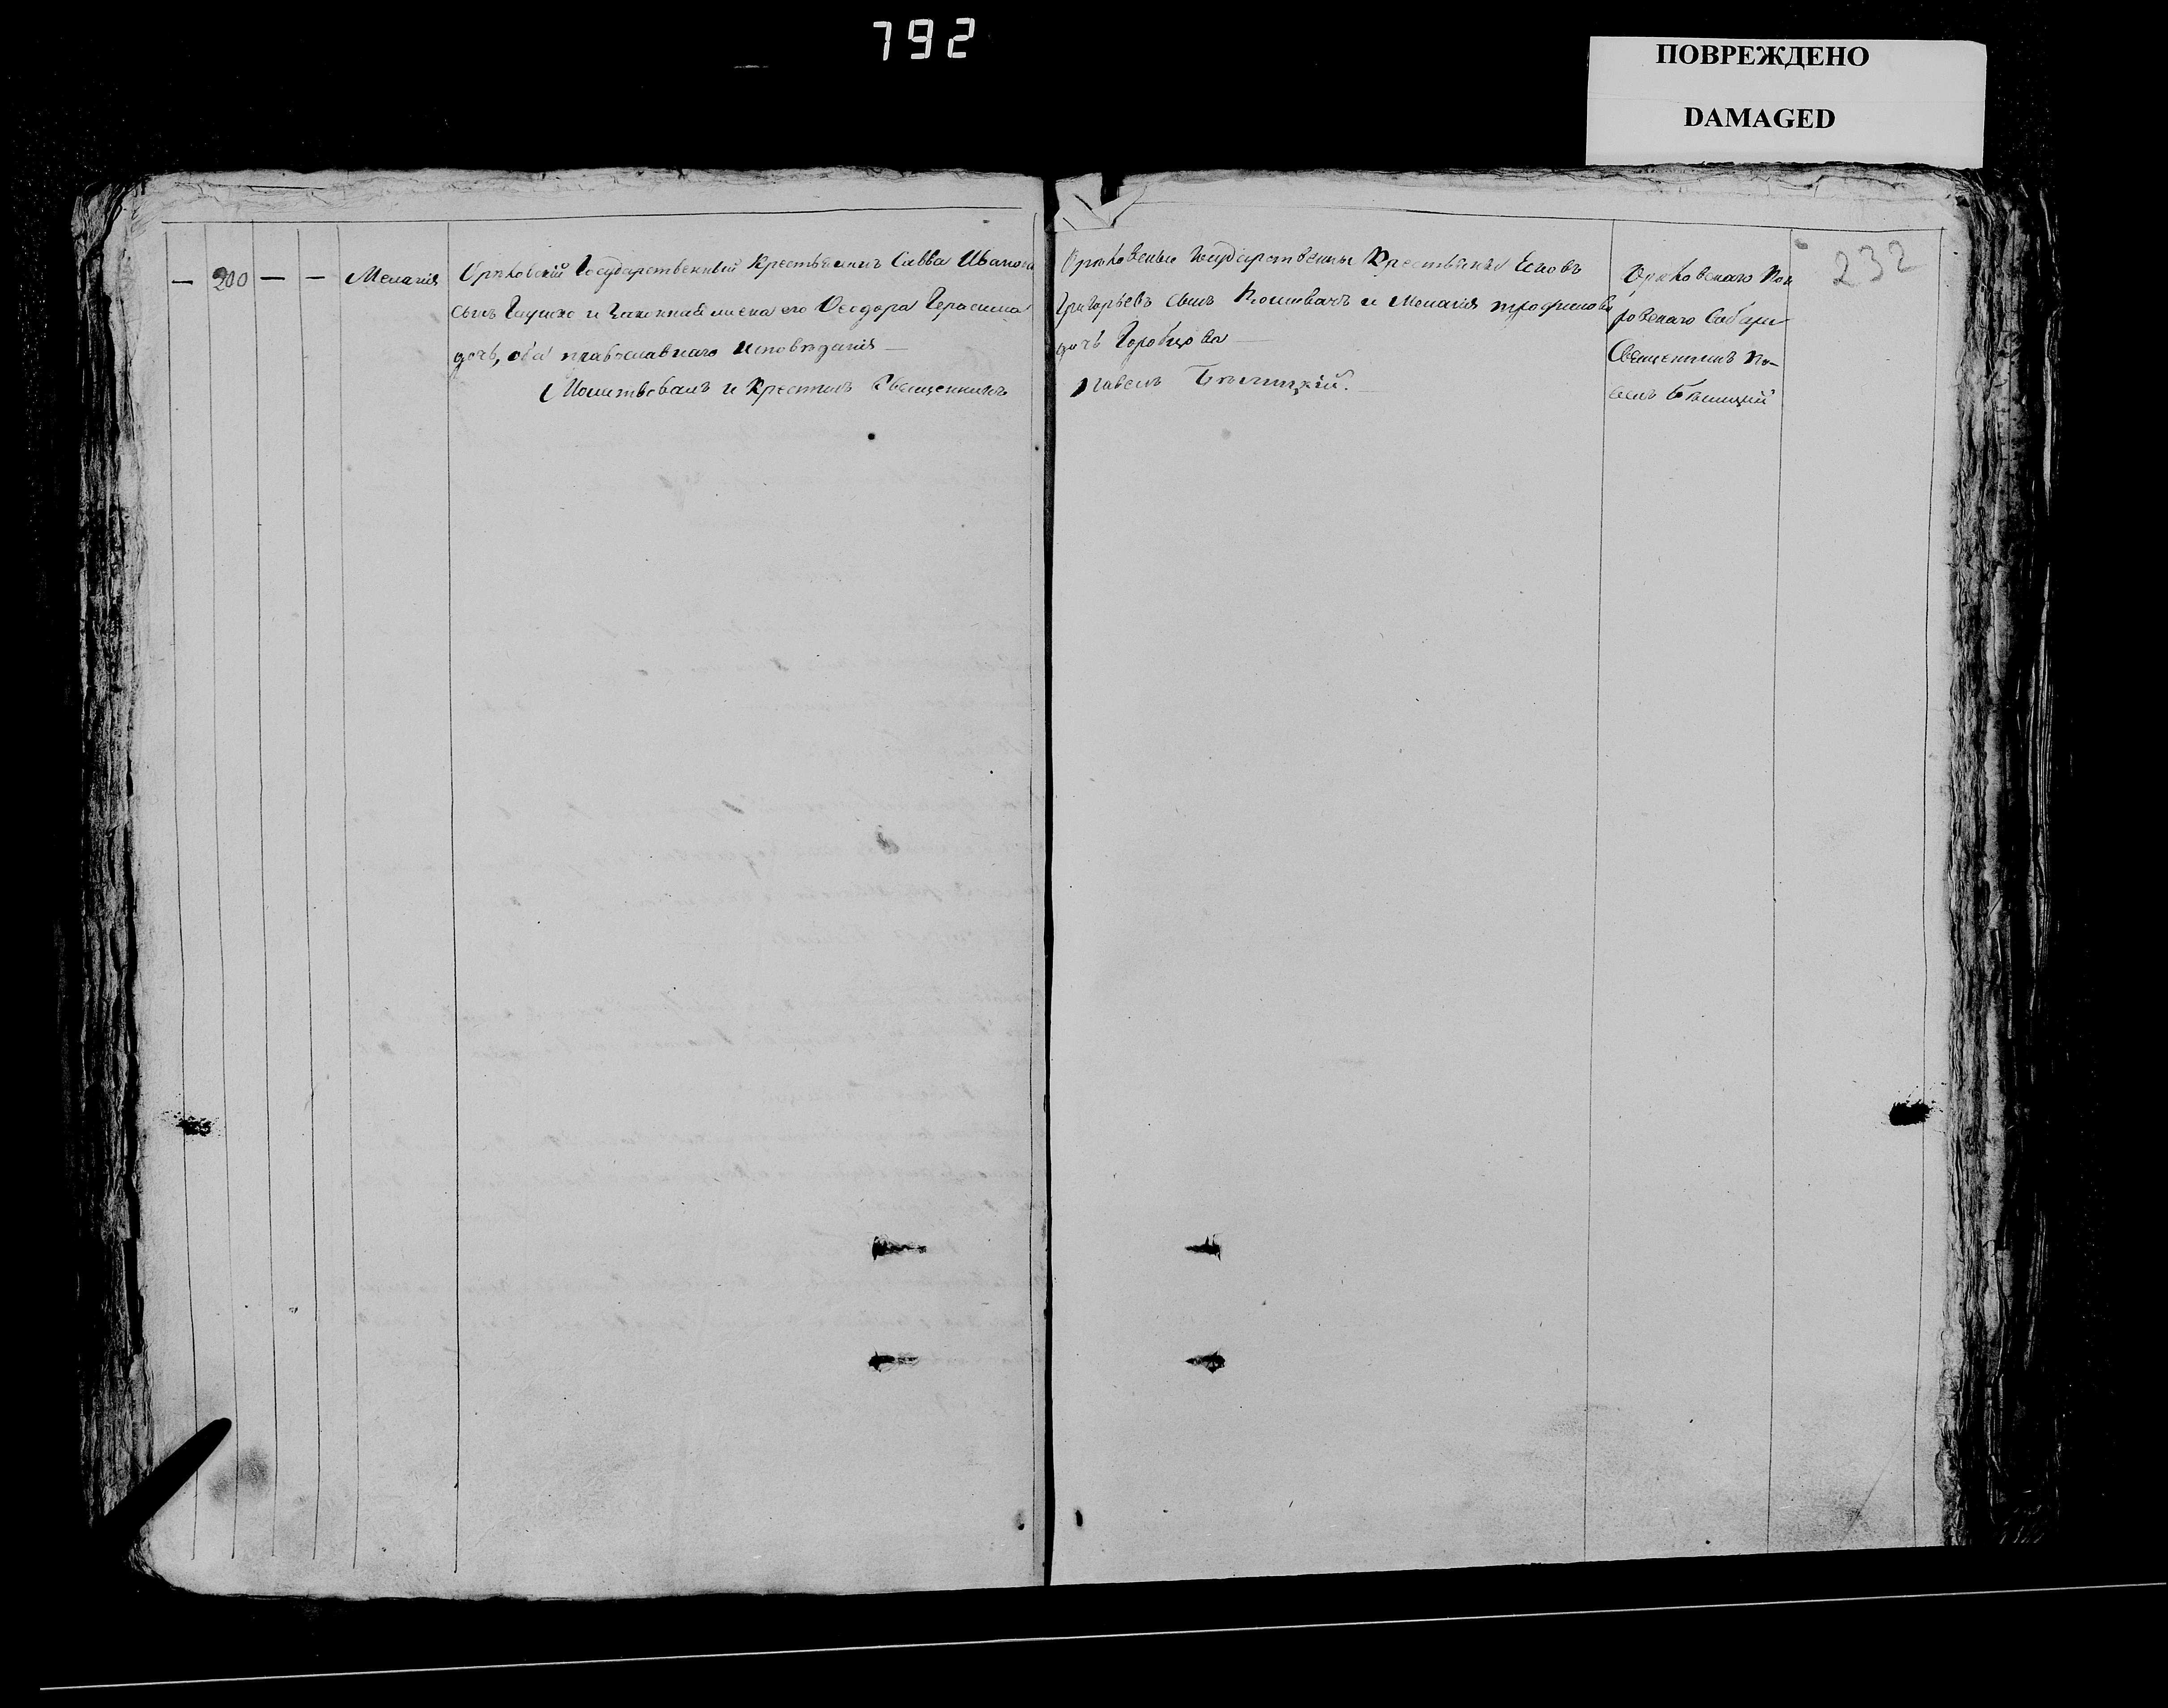 792
ПОВРЕЖДЕНО
DAMAGED
232
— 200 — — Меланія
Орѣховскій Государственный Крестьянинъ Савва Иванов
сынъ и Законная жена его Ѳеодора Герасимова
дочь, оба православнаго исповѣданія —
Молитвовалъ и Крестилъ Священникъ
Орѣховскіе Государственны Крестьяне Есиовъ
Григорьевъ сынъ и Меланія Трофимова
дочь Горобцова —
Павелъ Бѣлицкій. —
Орѣховскаго Пок
ровскаго Собора
Священникъ Па-
велъ Бѣлицкій